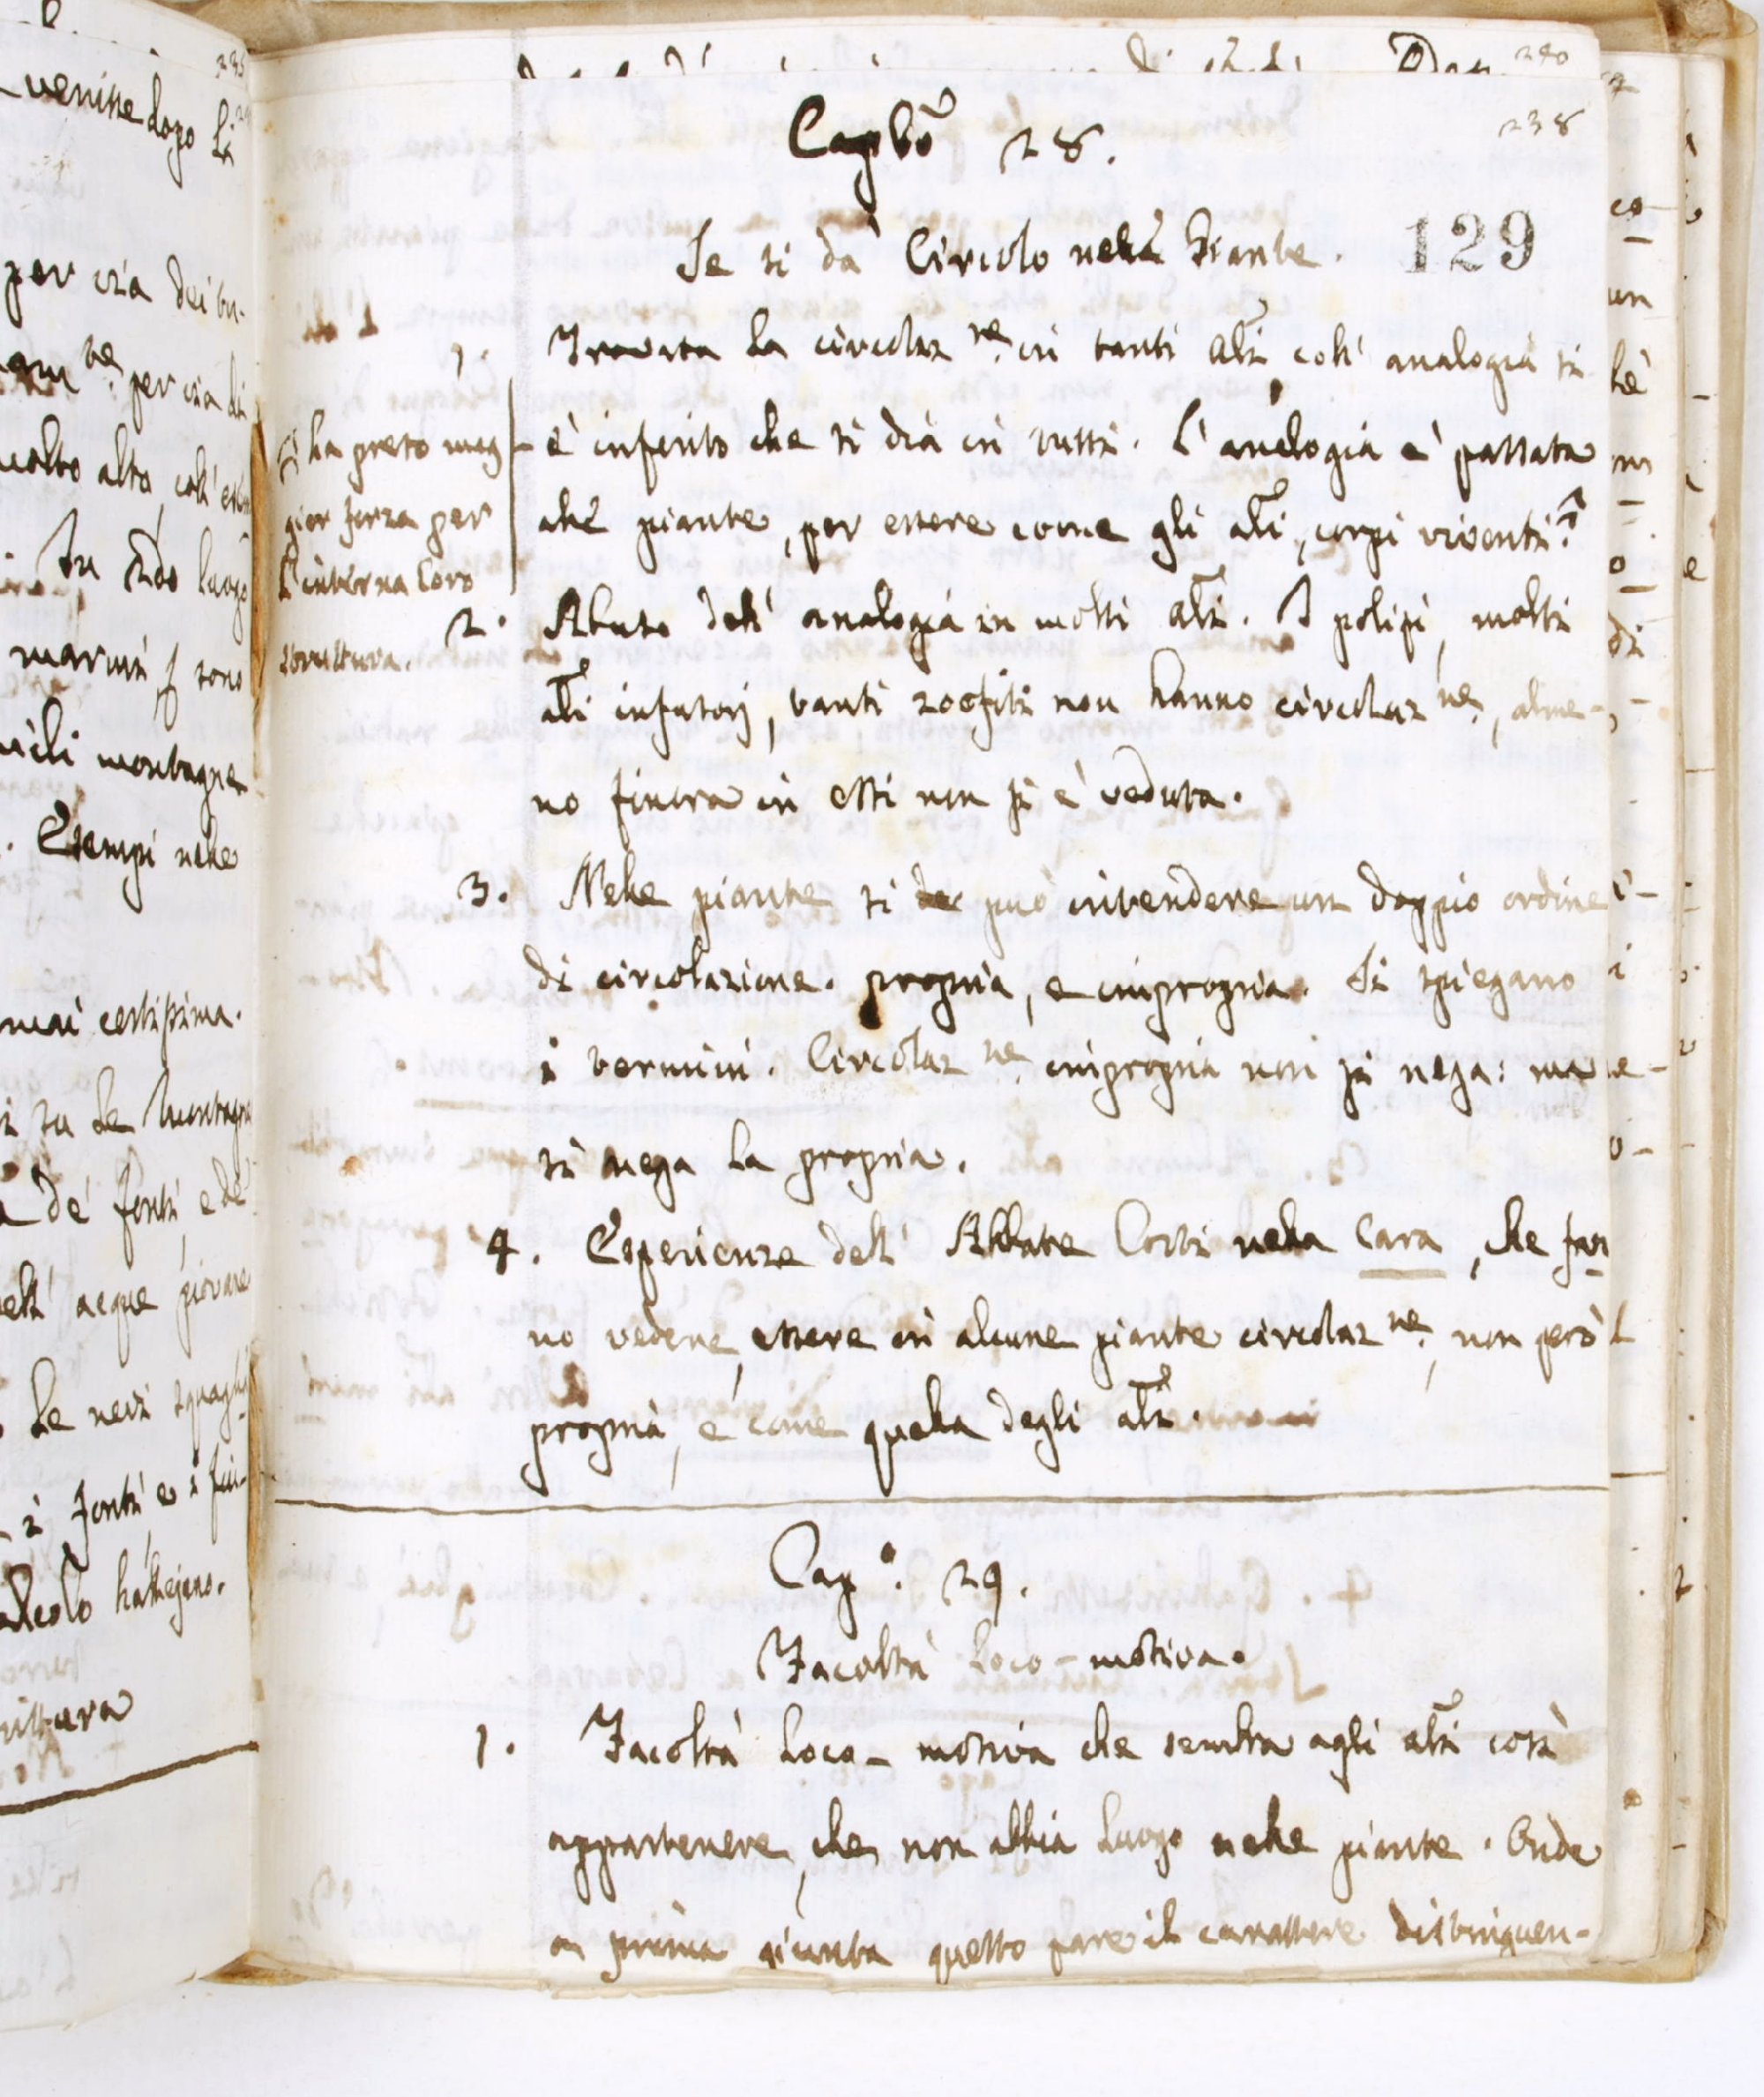 240
238
Caplo 28.
129
Se si dà Circolo nelle Piante.
1. Trovata la circolaz.ne in tanti ali coll' analogia si
è inferito che si dia in tutti. L' analogia è passata
alle piante, per essere come gli ali, corpi viventi.
Si ha preso mag-
gior forza per
l'interna loro
struttura.
2. Abuso dell' analogia in molti ali. I polipi, molti
ali infusorj, tanti zoofiti non hanno circolaz.ne, alme-
no finora in essi non si è veduta.
3. Nelle piante si può intendere un doppio ordine
di circolazione. propria, e impropria. Si spiegano
i termini. Circolaz.ne impropria non si nega: ma
si nega la propria.
4. Esperienze dell' Abbate Corti nella Cara, che fan
no vedere essere in alcune piante circolaz.ne, non però
propria, e come quella degli ali.
Cap.o 29.
Facoltà loco-motiva.
1. Facoltà loco-motiva che sembra agli ali così
appartenere, che non abbia luogo nelle piante. Onde
a prima giunta questo pare il carattere distinguen-
venisse dopo li
per via dei
per via di
molto alto, coll'
In 2do luogo
marini sono
montagne
. Esempi nelle
mai certissima.
su le montagne
de' fonti, e de'
dell' acque piovane
le nevi
i fonti e i fiu-